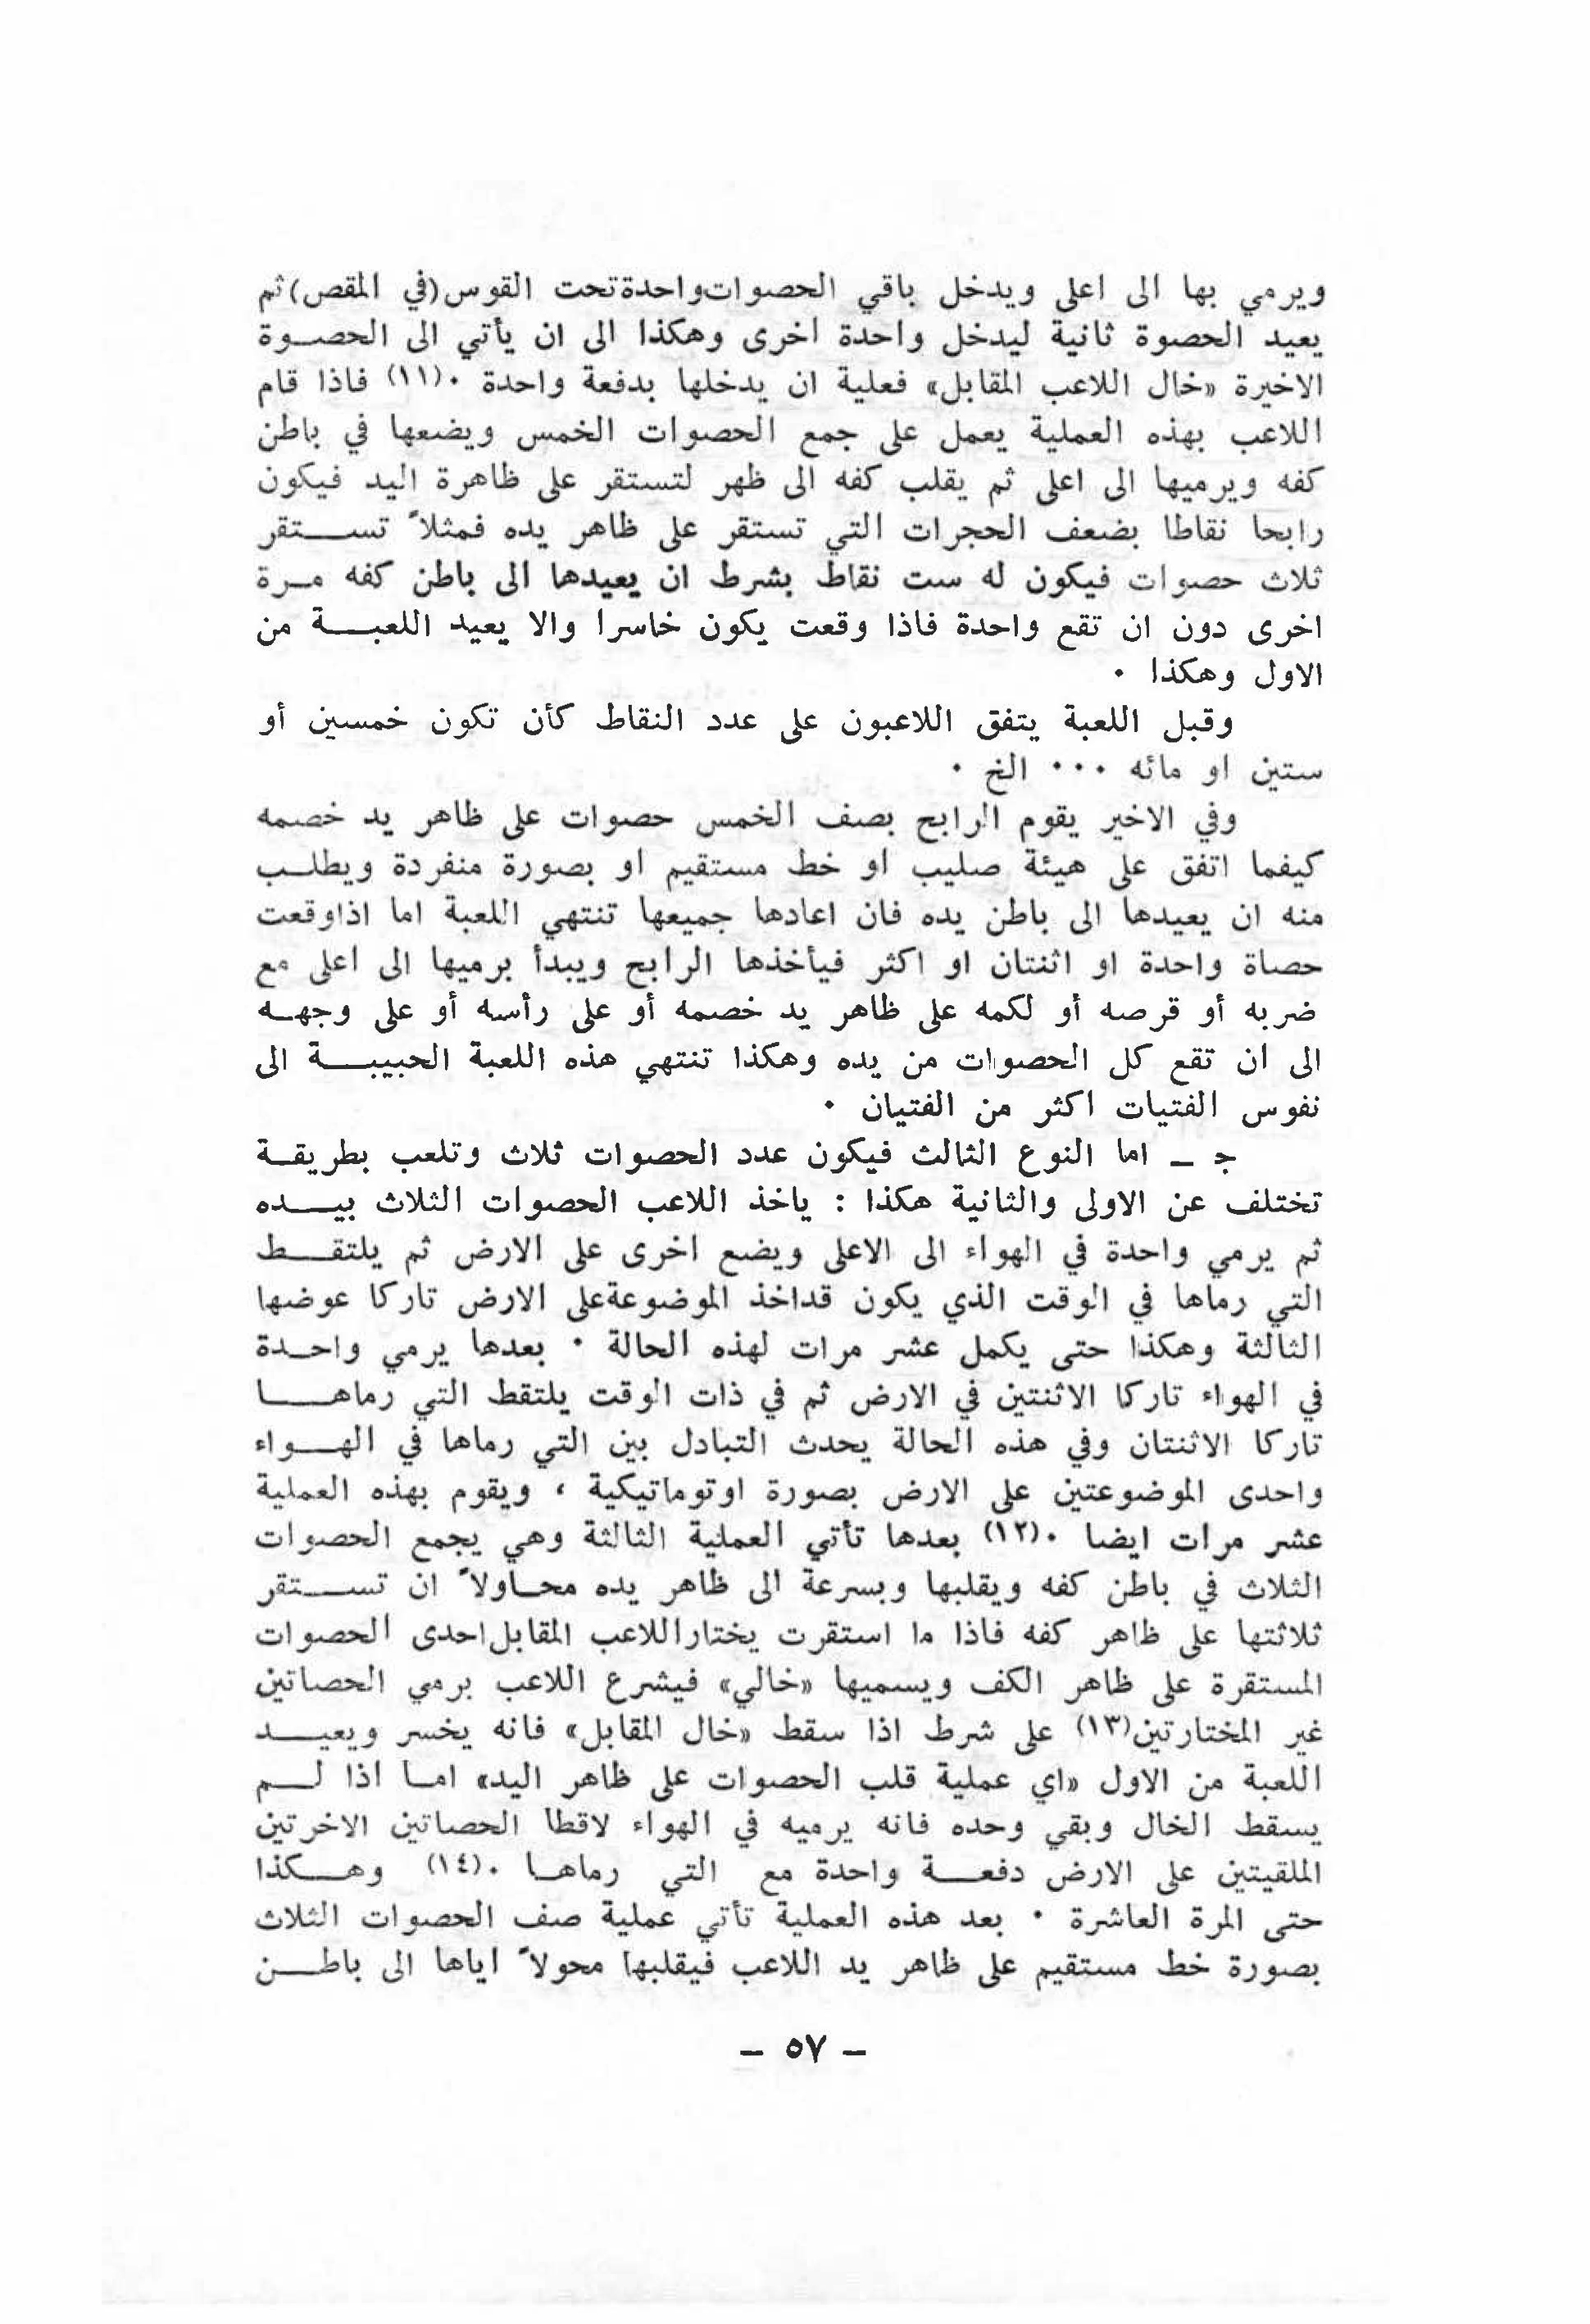 ويرمي بها الى اعلى ويدخل باقي الحصوات واحدة تحت القوس (في المقص) ثم
يعيد الحصوة ثانية ليدخل واحدة اخرى وهكذا الى ان يأتي الى الحصـوة
الاخيرة «خال اللاعب المقابل» فعلية ان يدخلها بدفعة واحدة ٠(١١) فاذا قام
اللاعب بهذه العملية يعمل على جمع الحصوات الخمس ويضعها في باطن
كفه ويرميها الى اعلى ثم يقلب كفه الى ظهر لتستقر على ظاهرة اليد فيكون
رابحا نقاطا بضعف الحجرات التي تستقر على ظاهر يده فمثلاً تســـتقر
ثلاث حصوات فيكون له ست نقاط بشرط ان يعيدها الى باطن كفه مـرة
اخرى دون ان تقع واحدة فاذا وقعت يكون خاسرا والا يعيد اللعبـــة من
الاول وهكذا ٠
وقبل اللعبة يتفق اللاعبون على عدد النقاط كأن تكون خمسين أو
ستين او مائه ٠٠٠ الخ ٠
وفي الاخير يقوم الرابح بصف الخمس حصوات على ظاهر يد خصمه
كيفما اتفق على هيئة صليب او خط مستقيم او بصورة منفردة ويطلـب
منه ان يعيدها الى باطن يده فان اعادها جميعها تنتهي اللعبة اما اذا وقعت
حصاة واحدة او اثنتان او اكثر فيأخذها الرابح ويبدأ برميها الى اعلى مع
ضربه أو قرصه أو لكمه على ظاهر يد خصمه أو على رأسه أو على وجهـه
الى ان تقع كل الحصوات من يده وهكذا تنتهي هذه اللعبة الحبيبـــة الى
نفوس الفتيات اكثر من الفتيان ٠
جـ ــ اما النوع الثالث فيكون عدد الحصوات ثلاث وتلعب بطريقـة
تختلف عن الاولى والثانية هكذا : ياخذ اللاعب الحصوات الثلاث بيـــده
ثم يرمي واحدة في الهواء الى الاعلى ويضع اخرى على الارض ثم يلتقـــط
التي رماها في الوقت الذي يكون قد اخذ الموضوعة على الارض تاركا عوضها
الثالثة وهكذا حتى يكمل عشر مرات لهذه الحالة ٠ بعدها يرمي واحـدة
في الهواء تاركا الاثنتين في الارض ثم في ذات الوقت يلتقط التي رماهـــا
تاركا الاثنتان وفي هذه الحالة يحدث التبادل بين التي رماها في الهـــواء
واحدى الموضوعتين على الارض بصورة اوتوماتيكية ، ويقوم بهذه العملية
عشر مرات ايضا ٠(١٢) بعدها تأتي العملية الثالثة وهي يجمع الحصوات
الثلاث في باطن كفه ويقلبها وبسرعة الى ظاهر يده محـاولاً ان تســـتقر
ثلاثتها على ظاهر كفه فاذا ما استقرت يختار اللاعب المقابل احدى الحصوات
المستقرة على ظاهر الكف ويسميها «خالي» فيشرع اللاعب برمي الحصاتين
غير المختارتين(١٣) على شرط اذا سقط «خال المقابل» فانه يخسر ويعيـــد
اللعبة من الاول «اي عملية قلب الحصوات على ظاهر اليد» امـا اذا لـــم
يسقط الخال وبقي وحده فانه يرميه في الهواء لاقطا الحصاتين الاخرتين
الملقيتين على الارض دفعـــة واحدة مع التي رماهـا ٠(١٤) وهـــكذا
حتى المرة العاشرة ٠ بعد هذه العملية تأتي عملية صف الحصوات الثلاث
بصورة خط مستقيم على ظاهر يد اللاعب فيقلبها محولاً اياها الى باطـــن
ــ ٥٧ ــ